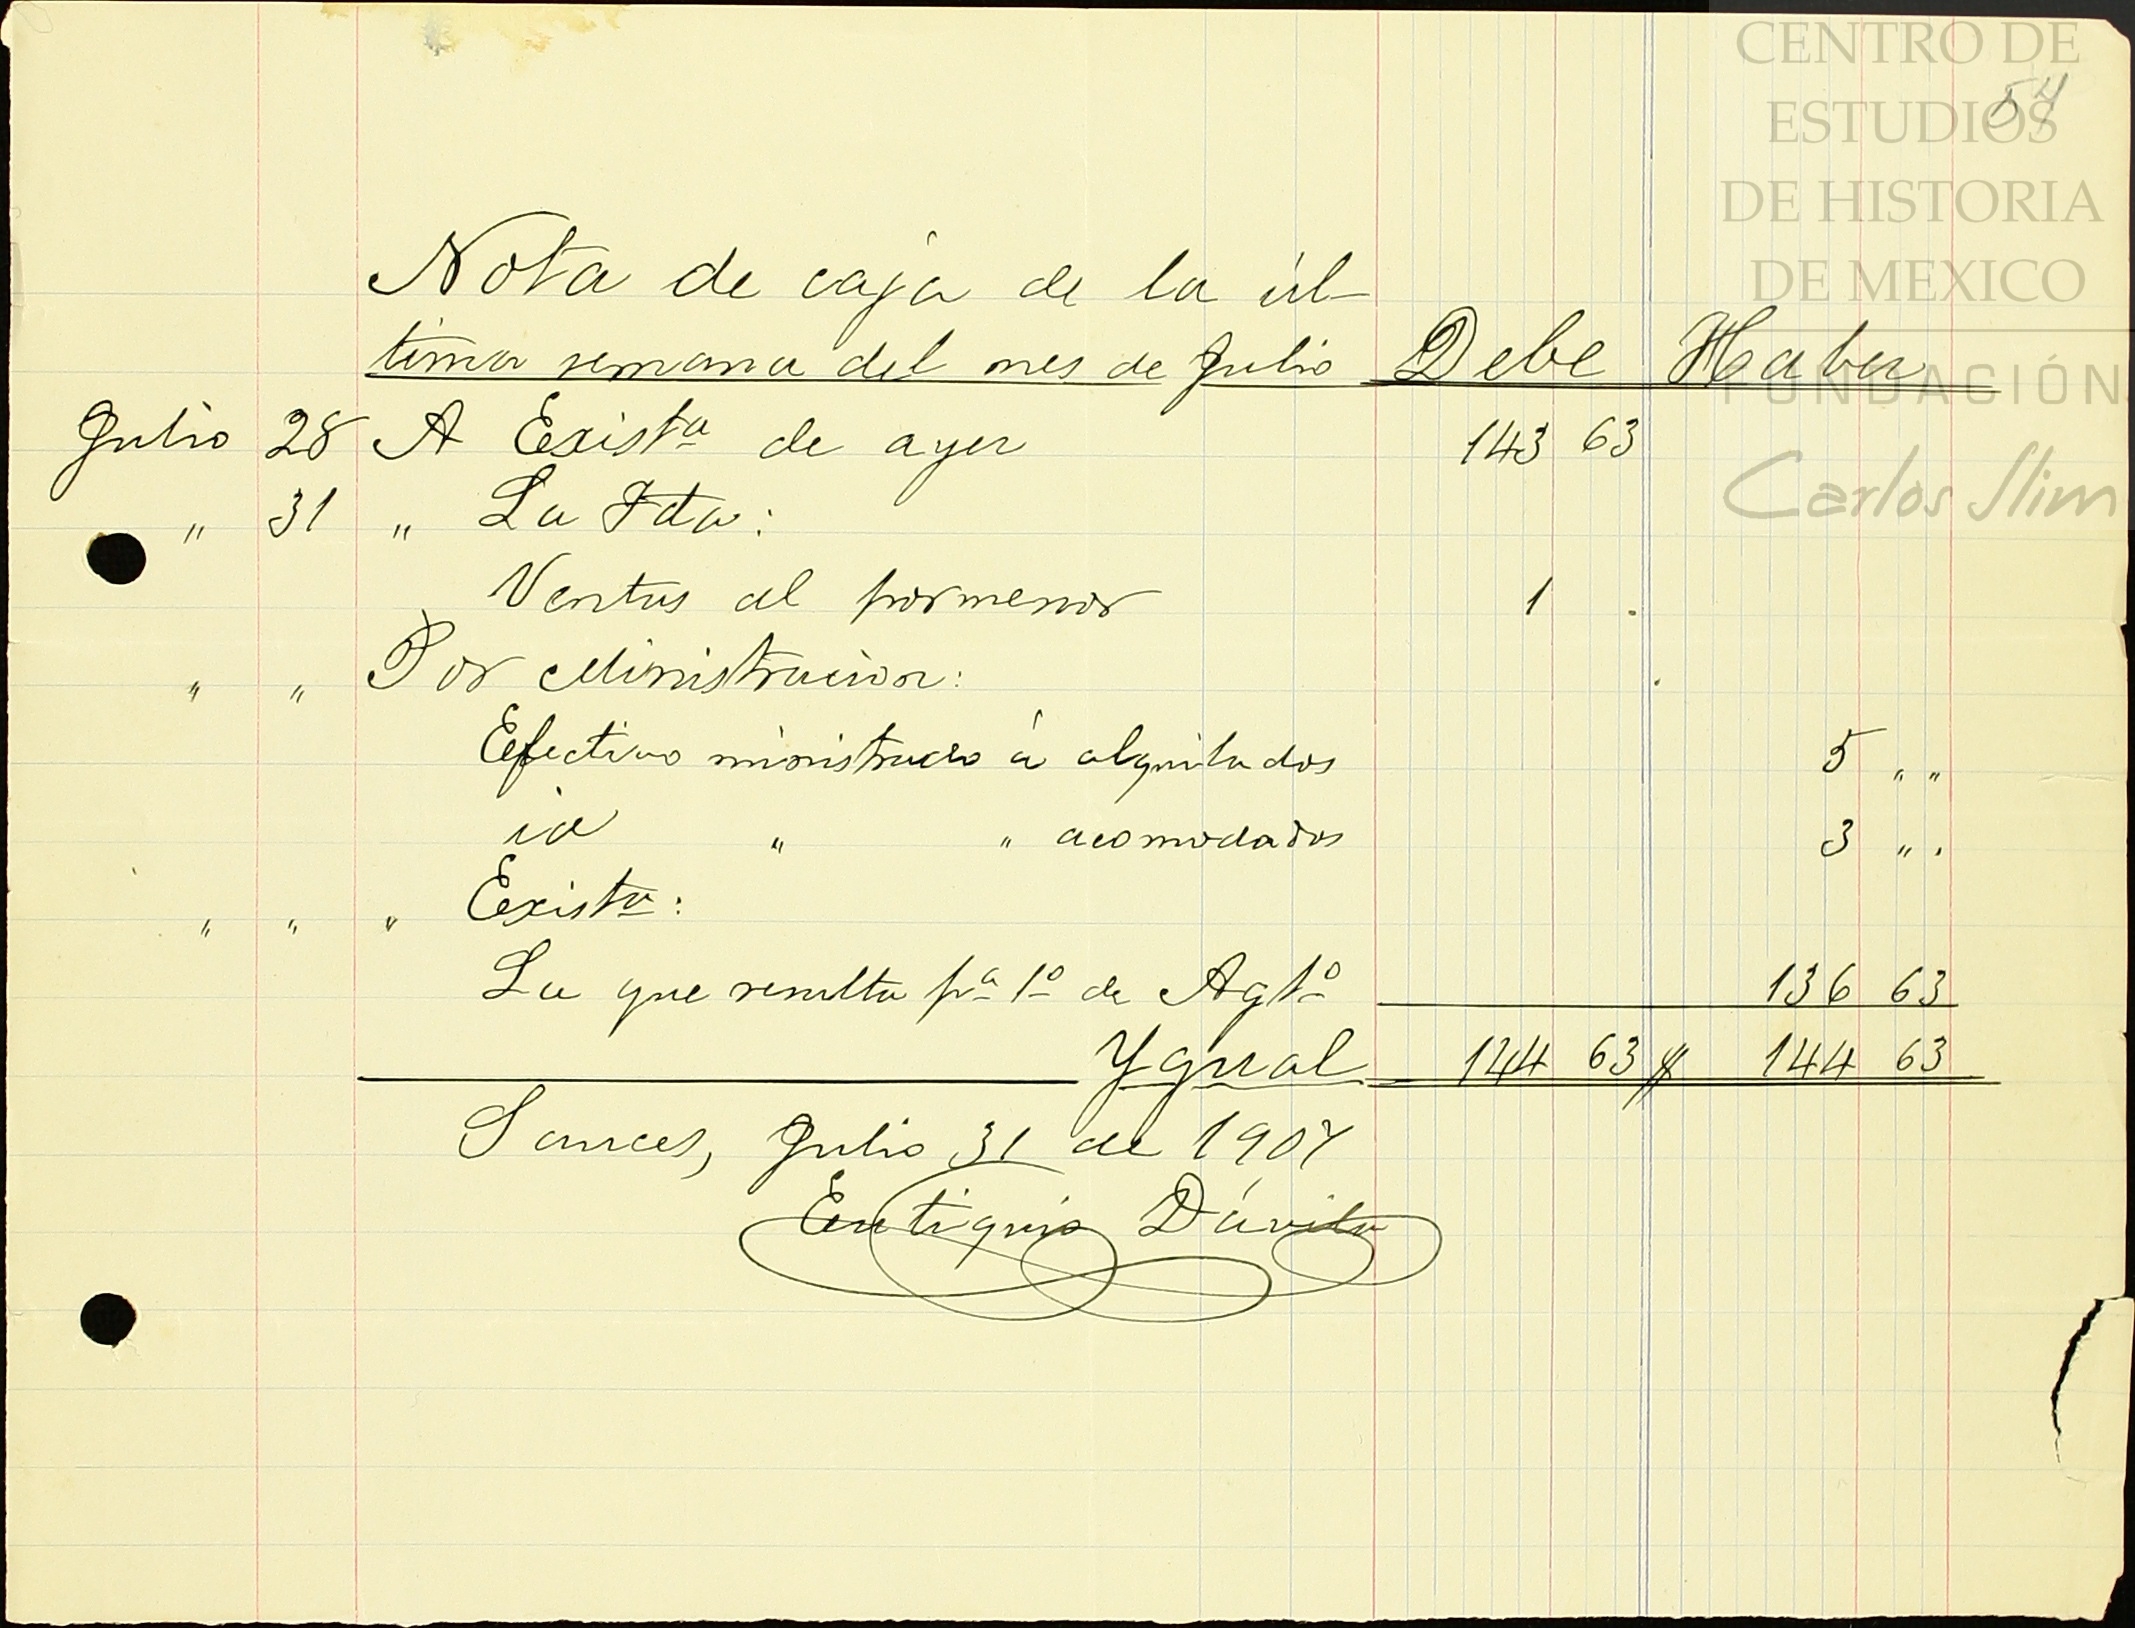 CENTRO DE
ESTUDIOS
DE HISTORIA
DE MEXICO
FUNDACIÓN
Carlos Slim
54
Nota de caja de la úl-
tima semana del mes de Julio Debe Haber
Julio 28 A Existª de ayer 143 63
" 31 " La Fda:
Ventas al pormenor 1 .
" " Por Ministracion:
Efectivo ministrado á alquilados 5 " "
id " " acomodados 3 " "
" " " Existª:
La que resulta pª 1º de Agtº 136 63
Ygual 144 63 144 63
Sauces, Julio 31 de 1907
Eutiquio Dávila